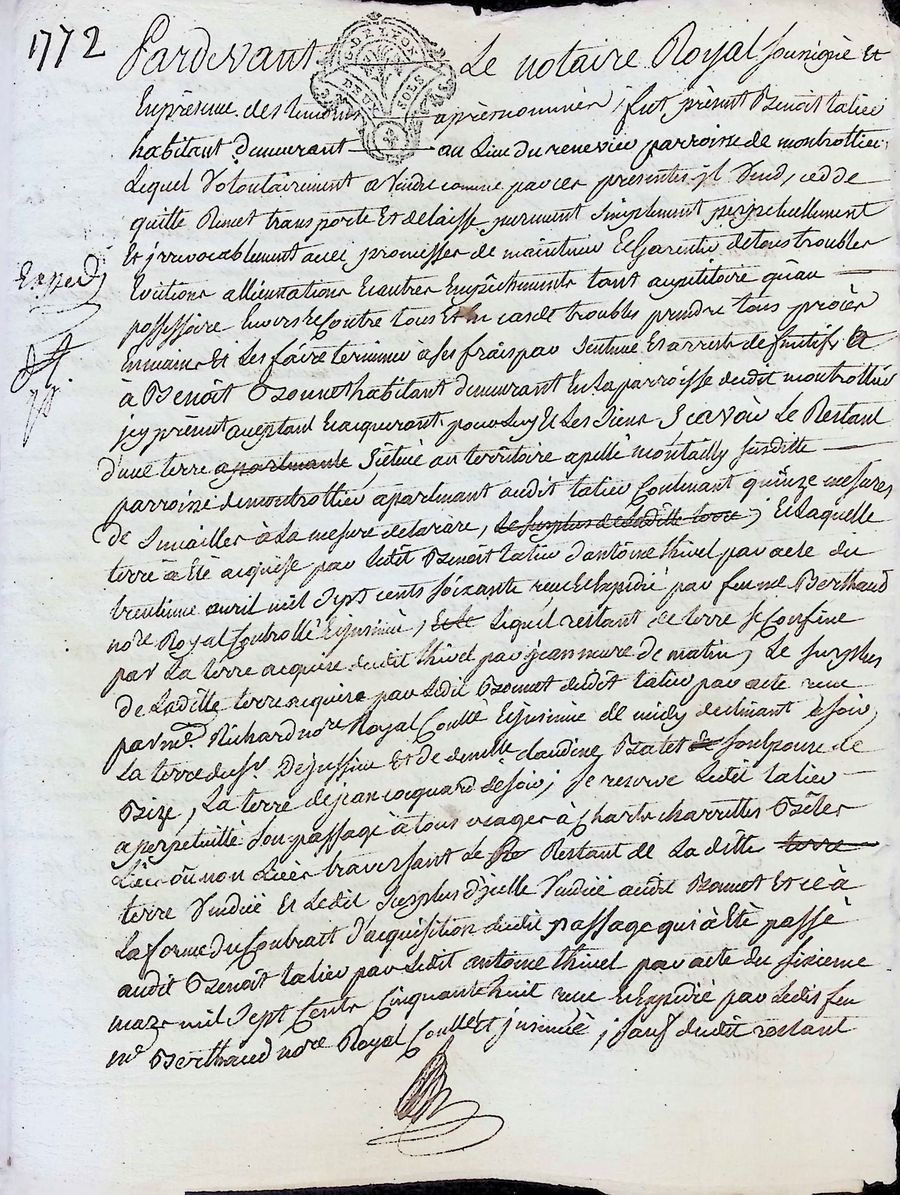 1772
Pardevant Le notaire Royal soussigné Et
DE LYON
DEUX SOLS
En présence des témoins aprèsnommés, fut présent Benoit talieu
habitant demeurant au Lieu du reneviere parroisse de montrottier,
Lequel Volontairement a Vendu comme par ces presentes jl Vend, cedde
quitte Remet transporte Et delaisse purement Simplement perpetuellement
Et jrrevocablement avec promisses de maintenir Et Garentir de tous troubles
Exped
Evitions allienations Et autres Empêchements tant au petitoire qu'au
possessoire Envers Et Contre tous Et En cas de troubles prendre tous procès
En main Et Les faire terminer à ses frais par Sentence Et arrests definitifs Et
à Benoît Bonnet habitant demeurant En La parroisse dudit montrottier
jcy présent aceptant Et acquerant pour Luy Et Les Siens Scavoir Le Restant
d'une terre apartenante Situee au territoire apellé montailly susditte
parroisse de montrottier apartenant audit talieu Contenant quinze mesures
de Semailles à La mesure de tarare, Le surplus de Laditte terre ; Et Laquelle
terre a Eté acquise par Ledit Benoit talieu d'antoine thivel par acte du
trentieme avril mil Sept cents soixante reçu Et Expedié par feu me Berthaud
nore Royal Controllé Et jnsinué, Et Le Lequel restant de terre se Confine
par La terre acquise dudit thivel par jean mure de matin, Le surplus
de Laditte terre acquise par Ledit Bonnet dudit talieu par acte reçu
par me. Richard nore Royal Conllé Et jnsinué de midy declinant à soir,
La terre du sr. Dejussieu Et de demlle. claudine Batet de son Epouse de
Bize, La terre de jean cocquard de soir ; se reserve Ledit talieu
a perpetuitté Son passage à tous usages à Chars charrettes Bêtes
Liées ou non Liées traversant Le Re Restant de La ditte terre
terre Vendue Et Ledit Surplus d'jcelle Vendue audit Bonnet Et ce à
La forme du Contrait d'acquisition dudit passage qui à Eté passé
audit Benoit talieu par Ledit antoine thivel par acte du sixieme
mars mil Sept Cents Cinquante huit reçu Et Expedié par Ledit feu
me Berthaud nore Royal Conllé Et jnsinué ; sauf dudit restant